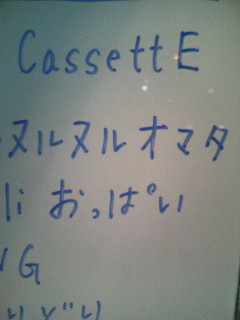 CassettE
ヌルヌルオマタ
li おっぱい
G